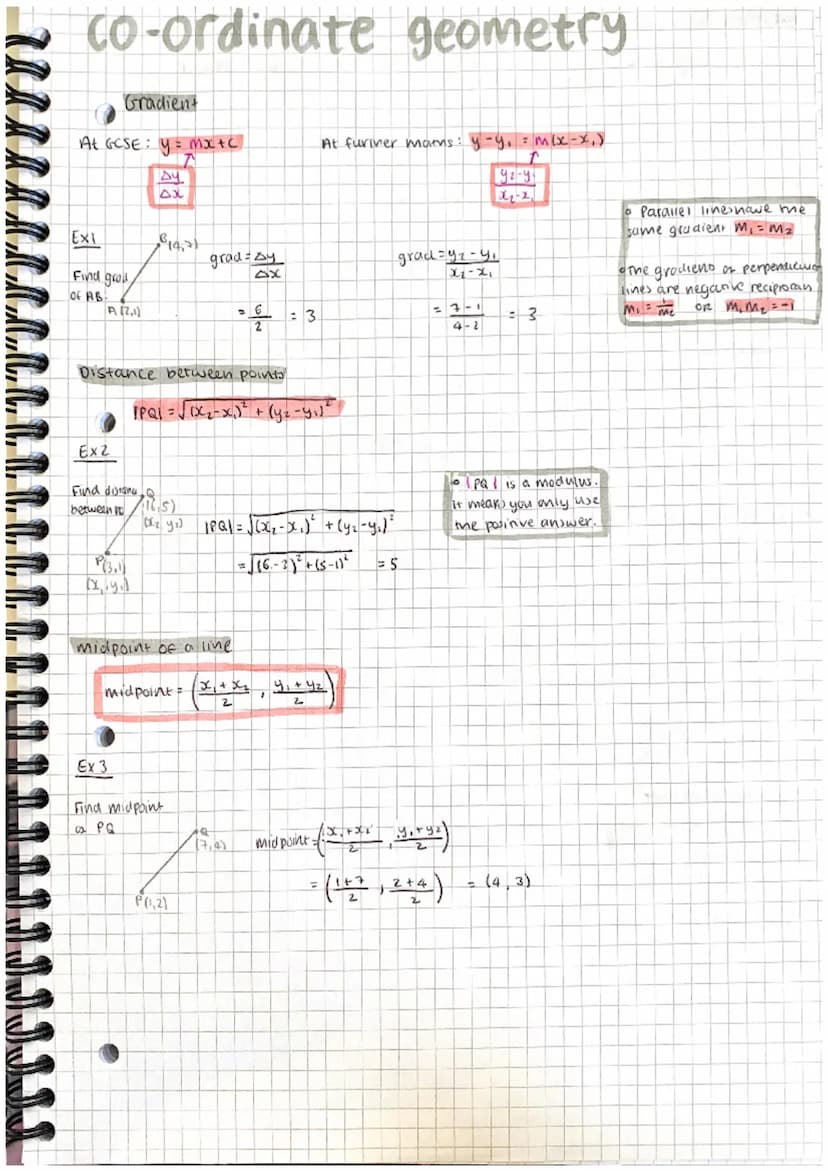 co-ordinate geometry
Gradient
At GCSE: y = mx+c
Δy
Δx
At further maths: y-y₁ = m(x-x₁)
y₂-y₁
x₂-x₁
• Parallel lines have the
same gradient m₁ = m₂
• The gradients of perpendicular
lines are negative reciprocals
m₁ = 1/m₂ OR m₁m₂ = -1
Ex1
Find grad
of AB.
B(4,7)
A(2,1)
grad = Δy/Δx
= 6/2 = 3
grad = y₂-y₁/x₂-x₁
= 7-1/4-2 = 3
Distance between points
|PQ| = √(x₂-x₁)² + (y₂-y₁)²
Ex2
Find distance
between PQ
Q
(6,5)
(x₂,y₂)
P(3,1)
(x₁,y₁)
|PQ| = √(x₂-x₁)² + (y₂-y₁)²
= √(6-3)² + (5-1)² = 5
• |PQ| is a modulus.
it means you only use
the positive answer.
midpoint of a line
midpoint = (x₁+x₂/2, y₁+y₂/2)
Ex 3
Find midpoint
of PQ
Q
(7,4)
P(1,2)
midpoint = (x₁+x₂/2, y₁+y₂/2)
= (1+7/2, 2+4/2) = (4,3)